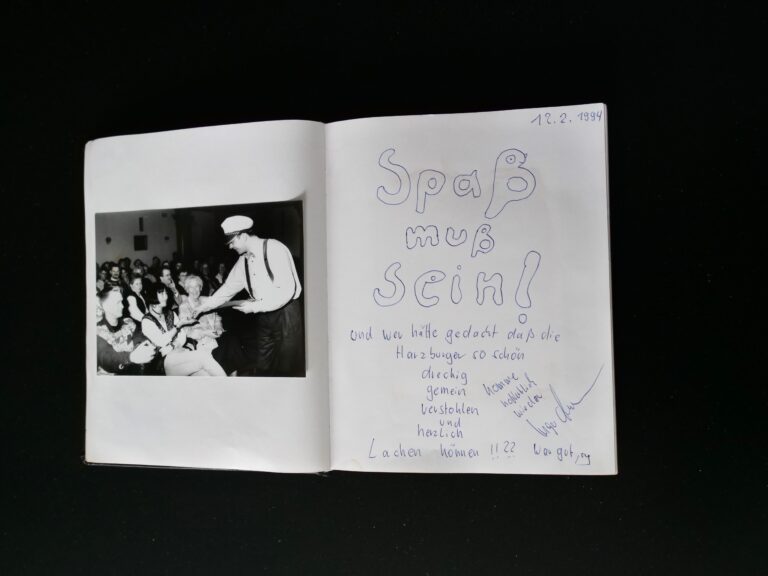 12.2.1994
Spaß
muß
sein!
und wer hätte gedacht daß die
Harzburger so schön
dreckig
gemein
verstohlen
und
herzlich
Lachen können !!??
komme
natürlich
wieder
war gut,